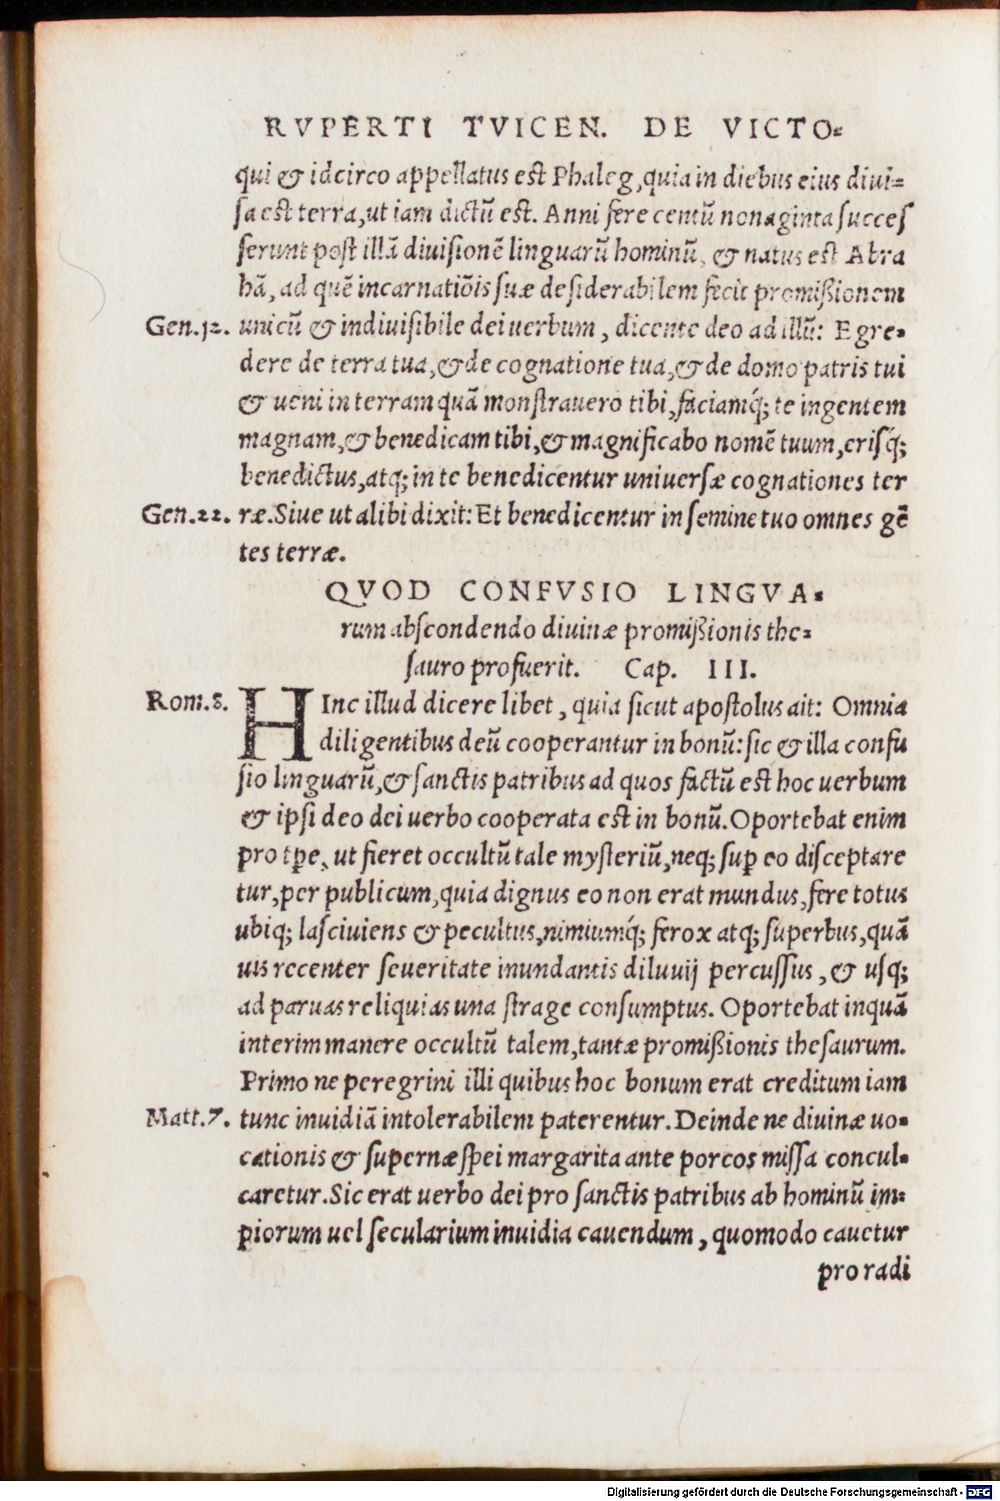 RVPERTI TVICEN. DE VICTO-
qui & idcirco appellatus est Phaleg, quia in diebus eius diui-
sa est terra, ut iam dictū est. Anni fere centū nonaginta succes
serunt post illā diuisionē linguarū hominū, & natus est Abra
hā, ad quē incarnatiōis suæ desiderabilem fecit promißionem
Gen.12. unicū & indiuisibile dei uerbum, dicente deo ad illū: Egre-
dere de terra tua, & de cognatione tua, & de domo patris tui
& ueni in terram quā monstrauero tibi, faciamq́; te ingentem
magnam, & benedicam tibi, & magnificabo nomē tuum, erisq́;
benedictus, atq; in te benedicentur uniuersæ cognationes ter
Gen.22. ræ. Siue ut alibi dixit: Et benedicentur in semine tuo omnes gē
tes terræ.
QVOD CONFVSIO LINGVA-
rum abscondendo diuinæ promißionis the-
sauro profuerit. Cap. III.
Rom.8. HInc illud dicere libet, quia sicut apostolus ait: Omnia
diligentibus deū cooperantur in bonū: sic & illa confu
sio linguarū, & sanctis patribus ad quos factū est hoc uerbum
& ipsi deo dei uerbo cooperata est in bonū. Oportebat enim
pro tꝑe, ut fieret occultū tale mysteriū, neq; suꝑ eo disceptare
tur, per publicum, quia dignus eo non erat mundus, fere totus
ubiq; lasciuiens & pecultus, nimiumq́; ferox atq; superbus, quā
uis recenter seueritate inundantis diluuij percussus, & usq;
ad paruas reliquias una strage consumptus. Oportebat inquā
interim manere occultū talem, tantæ promißionis thesaurum.
Primo ne peregrini illi quibus hoc bonum erat creditum iam
Matt.7. tunc inuidiā intolerabilem paterentur. Deinde ne diuinæ uo-
cationis & supernæ spei margarita ante porcos missa concul-
caretur. Sic erat uerbo dei pro sanctis patribus ab hominū im-
piorum uel secularium inuidia cauendum, quomodo cauetur
pro radi
Digitalisierung gefördert durch die Deutsche Forschungsgemeinschaft - DFG